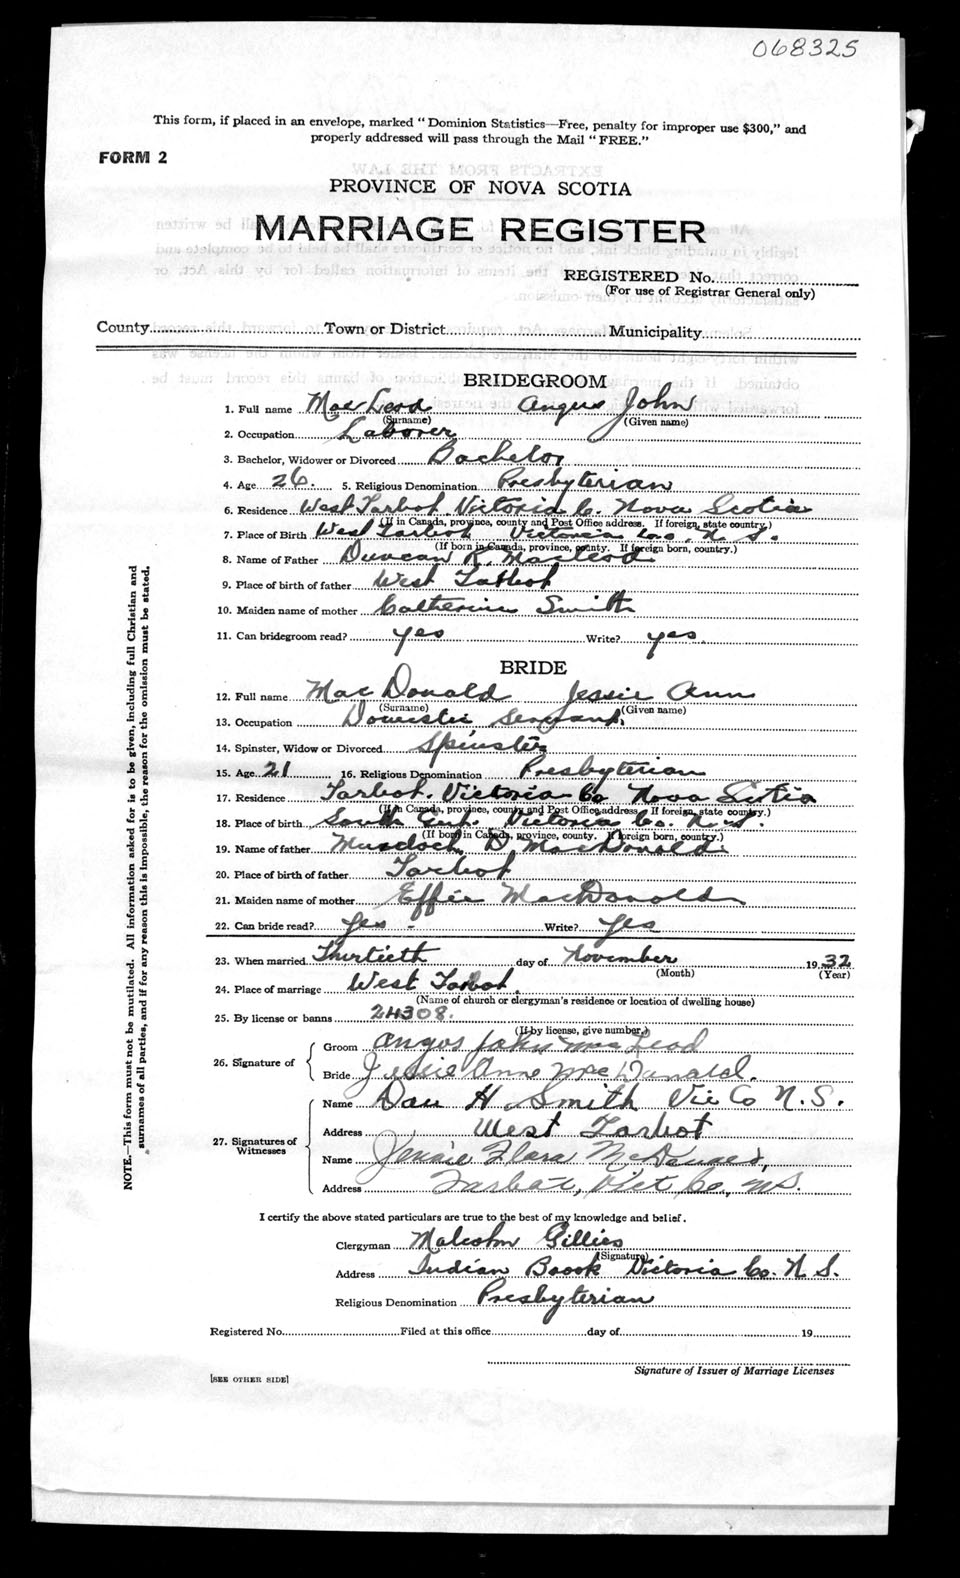 068325
This form, if placed in an envelope, marked "Dominion Statistics—Free, penalty for improper use $300," and
properly addressed will pass through the Mail "FREE."
FORM 2
PROVINCE OF NOVA SCOTIA
MARRIAGE REGISTER
REGISTERED No.
(For use of Registrar General only)
County Town or District Municipality
BRIDEGROOM
1. Full name MacLeod Angus John
(Surname) (Given name)
2. Occupation Laborer
3. Bachelor, Widower or Divorced Bachelor
4. Age 26. 5. Religious Denomination Presbyterian
6. Residence West Tarbot Victoria Co. Nova Scotia
(If in Canada, province, county and Post Office address. If foreign, state country.)
7. Place of Birth West Tarbot Victoria Co., N. S.
(If born in Canada, province, county. If foreign born, country.)
8. Name of Father Duncan R. MacLeod
9. Place of birth of father West Tarbot
10. Maiden name of mother Catherine Smith
11. Can bridegroom read? yes Write? yes.
BRIDE
12. Full name MacDonald Jessie Ann
(Surname) (Given name)
13. Occupation Domestic Servant.
14. Spinster, Widow or Divorced Spinster
15. Age 21 16. Religious Denomination Presbyterian
17. Residence Tarbot. Victoria Co Nova Scotia
(If in Canada, province, county and Post Office address. If foreign, state country.)
18. Place of birth South Victoria Co. N. S.
(If born in Canada, province, county. If foreign born, country.)
19. Name of father Murdoch D. MacDonald.
20. Place of birth of father Tarbot
21. Maiden name of mother Effie MacDonald
22. Can bride read? Yes - Write? Yes
23. When married Thirtieth day of November 19 32
(Month) (Year)
24. Place of marriage West Tarbot.
(Name of church or clergyman's residence or location of dwelling house)
25. By license or banns 24308.
(If by license, give number.)
26. Signature of { Groom Angus John MacLeod
Bride Jessie Anne McDonald.
27. Signatures of Witnesses { Name Dan H. Smith Vic Co N.S.
Address West Tarbot
Name Jennie Flora
Address Tarbot, Vict Co, N.S.
I certify the above stated particulars are true to the best of my knowledge and belief.
Clergyman Malcolm Gillies
(Signature)
Address Indian Broook Victoria Co. N. S.
Religious Denomination Presbyterian
Registered No. Filed at this office day of 19
Signature of Issuer of Marriage Licenses
[SEE OTHER SIDE]
NOTE.—This form must not be mutilated. All information asked for is to be given, including full Christian and
surnames of all parties, and if for any reason this is impossible, the reason for the omission must be stated.